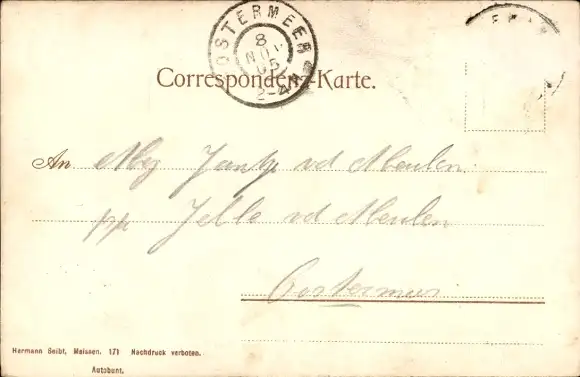 OOSTERMEER
8
NOV
05
2-4N
Correspondenz-Karte.
An Mej Jantje vd Meulen
pp Jelle vd Meulen
Oostermeer
Hermann Seibt, Meissen. 171 Nachdruck verboten.
Autobunt.